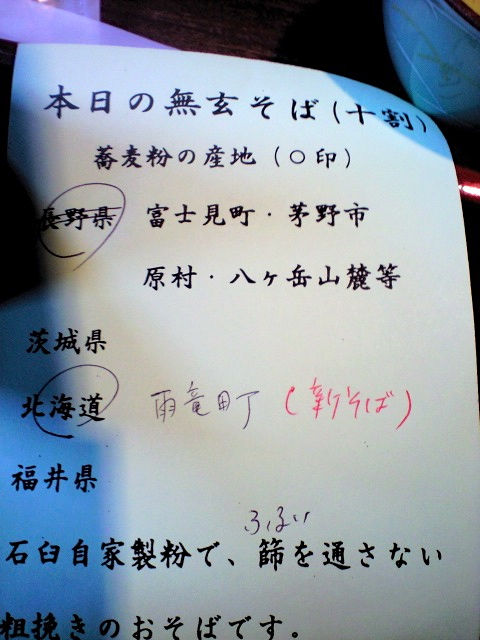 本日の無玄そば(十割)
蕎麦粉の産地（○印）
長野県 富士見町・茅野市
原村・八ヶ岳山麓等
茨城県
北海道 雨竜町 (新そば)
福井県
ふるい
石臼自家製粉で、篩を通さない
粗挽きのおそばです。